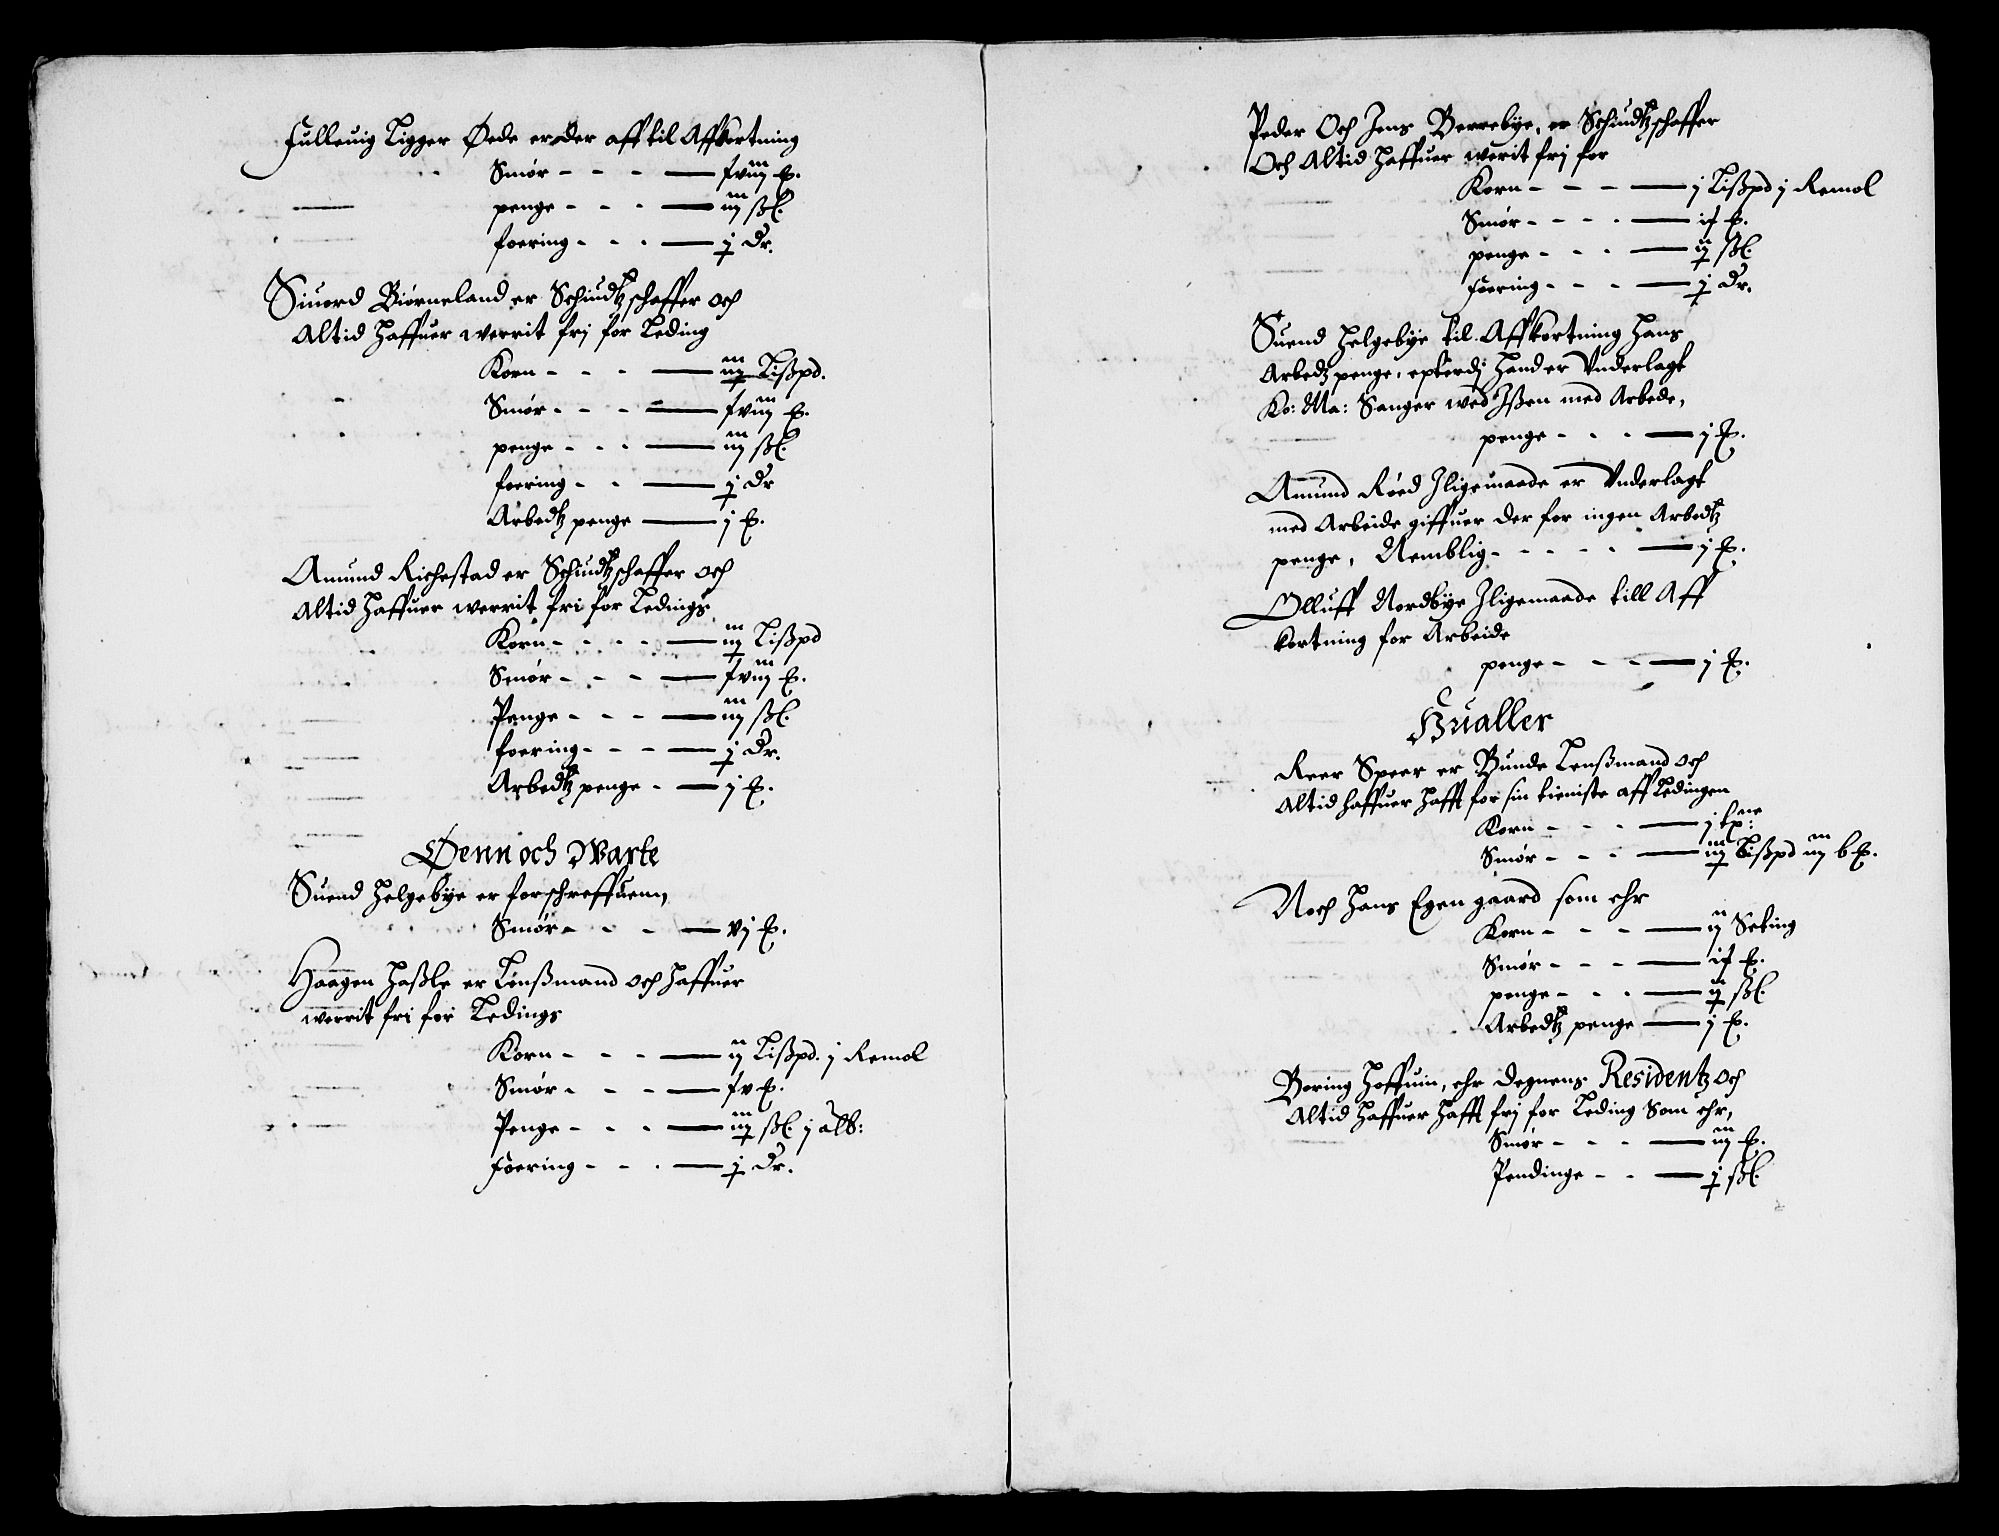 Fulleuig Ligger Øede er der aff til Affkortning
Smør - - - fviij
penge - - - iiij ßl.
foering - - - j Dr.
Siuord Biørneland er Schiudtzschaffer och
Altid Haffuer werrit frj for Leding
Korn - - - iiij Lißpd.
Smør - - - fviij
penge - - - iiij ßl.
foering - - j Dr
Arbedtz penge j
Amund Richestad er Schiudtzschaffer och
Altid Haffuer werrit fri for Ledings
Korn - - - - iiij Lißpd
Smør - - - fviij
Penge - - - iiij ßl.
foering - - - j Dr.
Arbedtz penge - j
Øenn och Warte
Suend Helgebye er forschreffuenn,
Smør - - - vj
Haagen Haßle er Lenßmand och Haffuer
werrit fri for Ledings
Korn - - - ij Lißpd. j Remol
Smør - - - fv
Penge - - - iiij ßl. j alb:
Foering - - - j Dr.
Peder Och Jens Berrebye, er Schiudtzschaffer
Och Altid Haffuer werit frj for
Korn - - - j Lißpd j Remol
Smør - - - - if
penge - - - ij ßl.
Foering - - - j Dr.
Suend Helgebye til Affkortning Hans
Arbedtz penge, epterdj Hand er Vnderlagt
Ko: Ma: Sauger wed Ißen med Arbede,
penge - - - j
Amund Røed Jligemaade er Vnderlagt
med Arbeide giffuer der for ingen Arbedtz
penge, Nemblig - - - - - j
Olluff Nordbye Jligemaade till Aff
kortning for Arbeide
penge - - - - j
Hualler
Reer Speer er Bunde Lenßmand och
Altid haffuer Hafft for sin tieniste aff Ledingen
Korn - - - j
Smør - - - iiij Lißpd iij b
Noch Hans Egen gaard som ehr
Korn - - - ij Seting
Smør - - - if
penge - - - ij ßl.
Arbedtz penge j
Boring Hoffuin, ehr Degnens Residentz och
Altid Haffuer Hafft frj for Leding Som ehr,
Smør - - - iij
Pendinge - - j ßl.